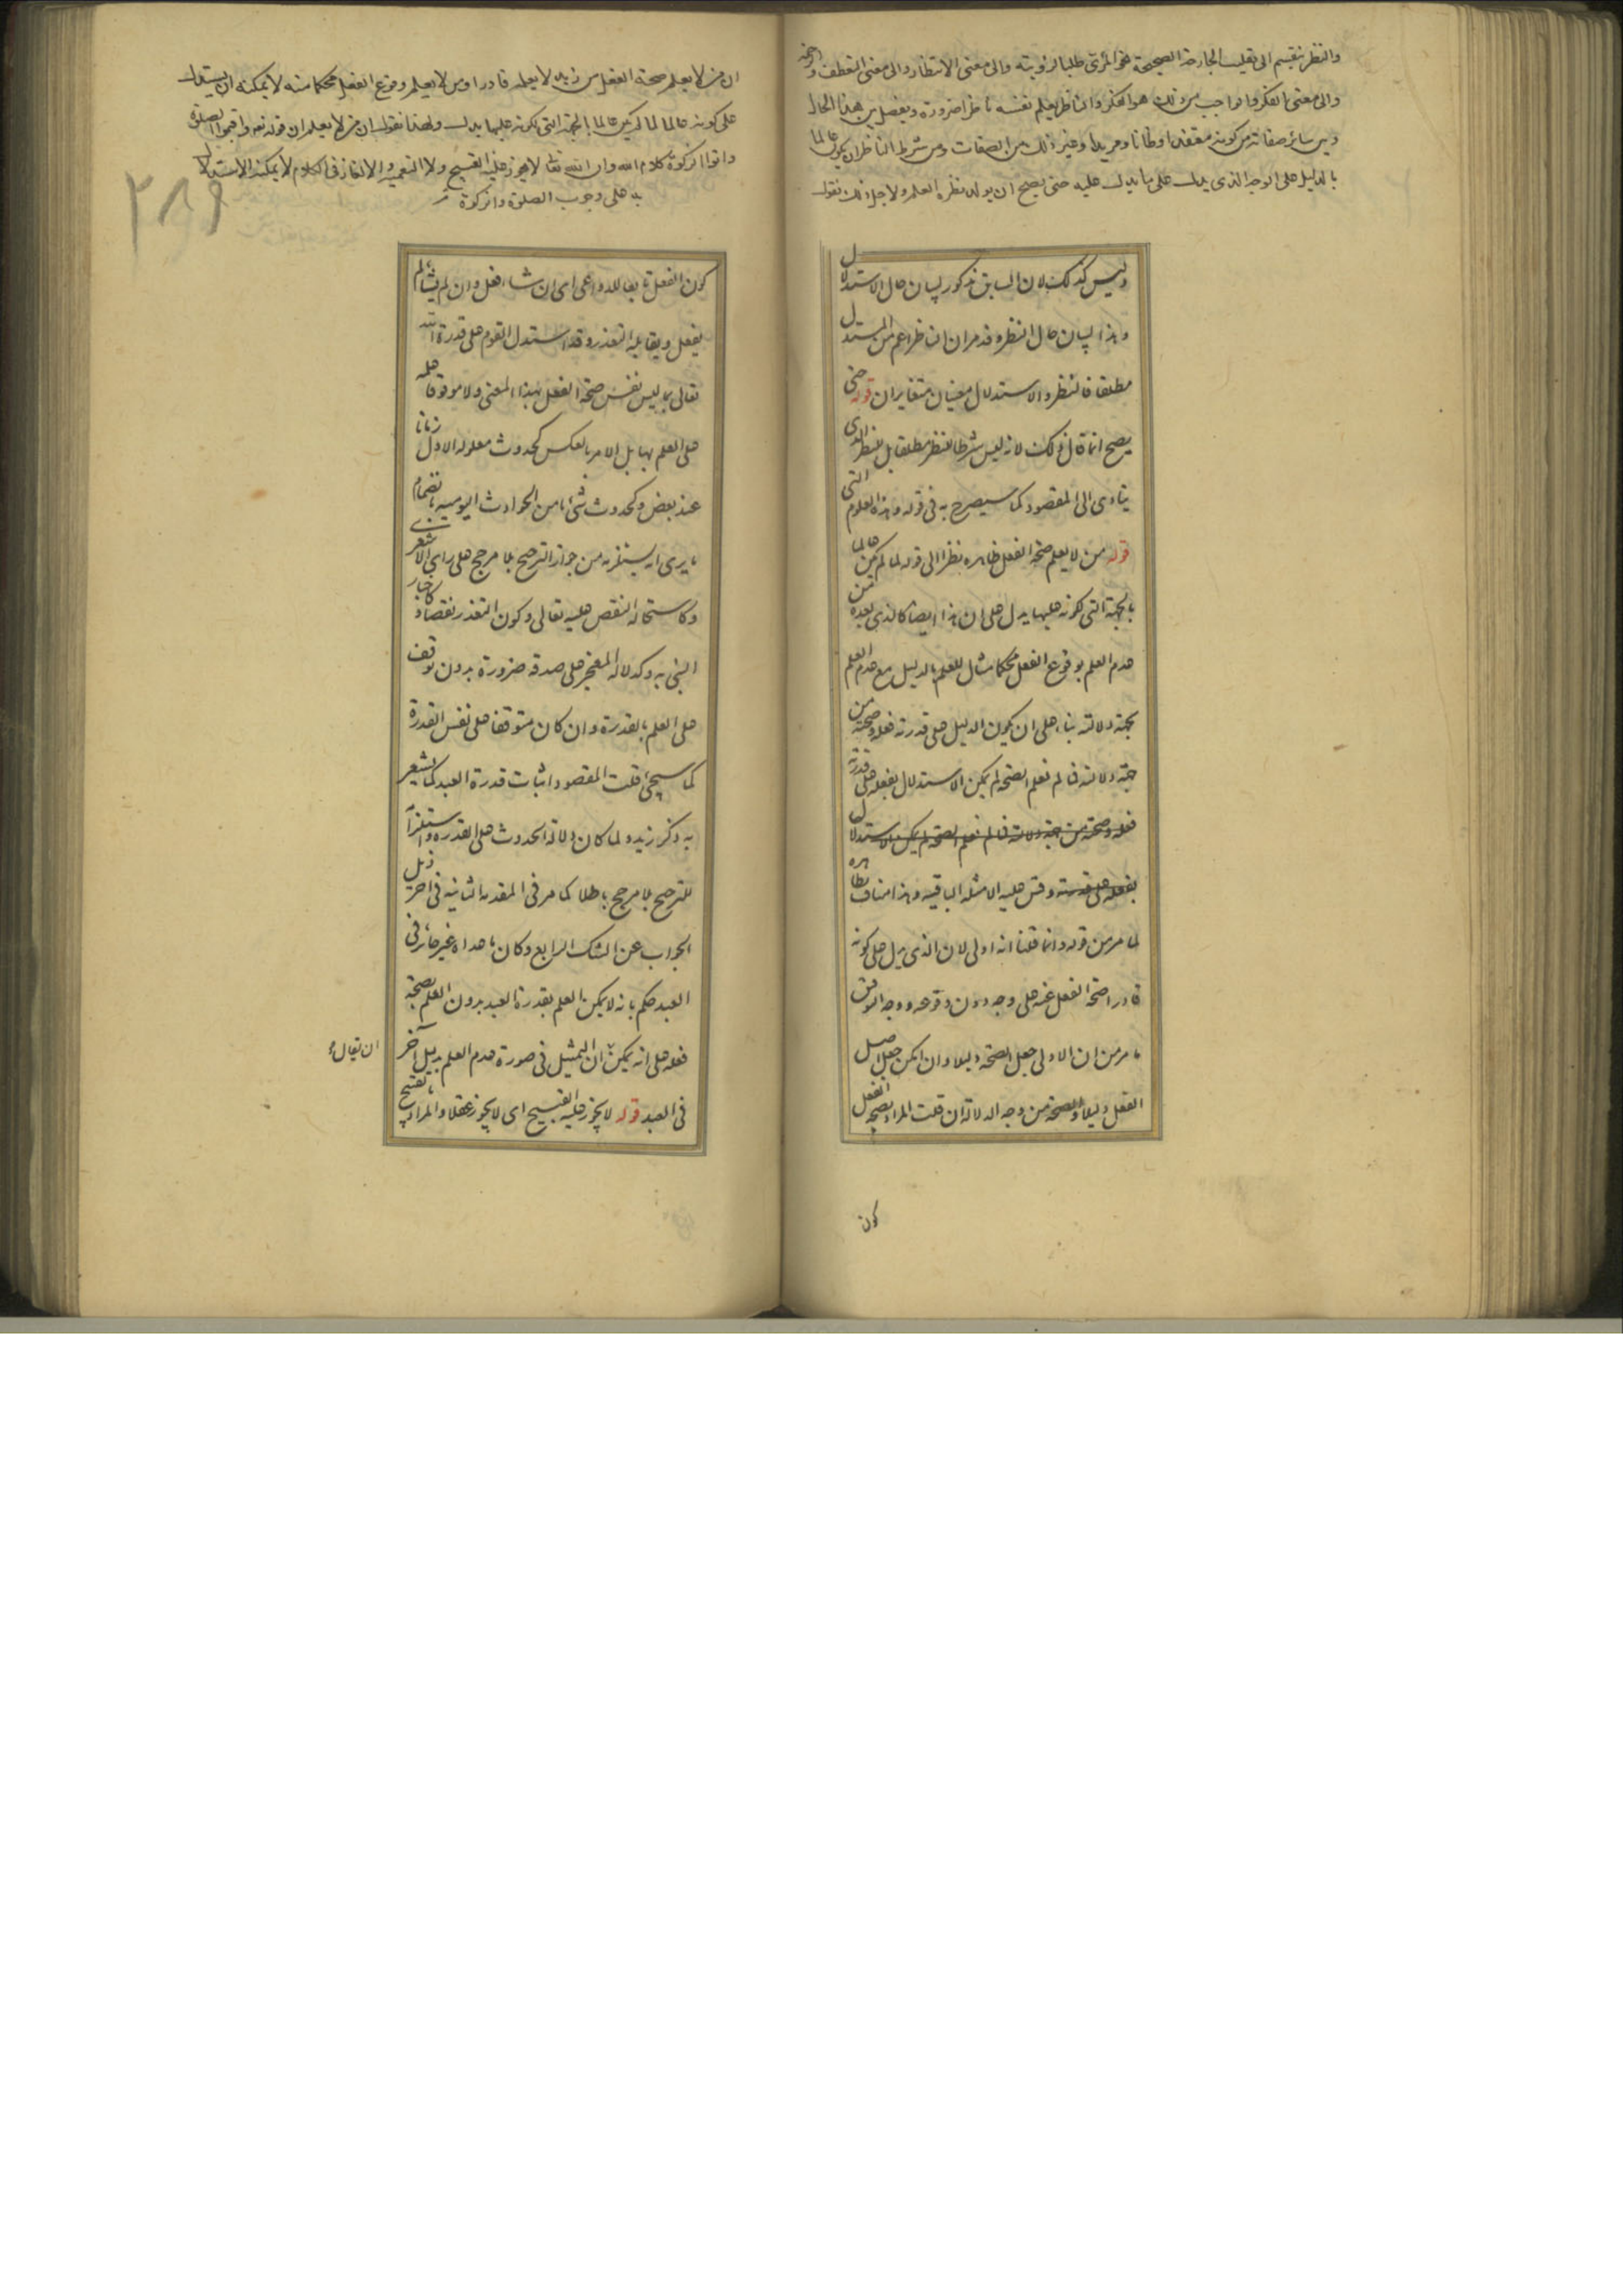 والنظر ينقسم الى تقليب الجارحة الصحيحة نحو المرئى طلبا لرؤيته والى معنى الانتظار والى معنى التعطف والرحمة
والى معنى الفكر والواجب من ذلك هو الفكر والناظر يعلم نفسه ناظرا ضرورة ويفصل بين هذا الحال
وبين سائر صفاته من كونه معتقدا وظانا ومريدا وغير ذلك من الصفات ومن شرط الناظر ان يكون عالما
بالدليل على الوجه الذى يدل على ما يدل عليه حتى يصح ان يولد نظره العلم ولاجل ذلك نقول
وليس كذلك لان السابق مذكور لبيان حال الاستدلال
وهذا لبيان حال النظر وقد مر ان الناظر اعم من المستدل
مطلقا فالنظر والاستدلال معنيان متغايران قوله حتى
يصح انما قال ذلك لانه ليس شرطا للنظر مطلقا بل للنظر الذى
يتادى الى المقصود كما سيصرح به فى قوله وهذه العلوم التى
قوله من لا يعلم صحة الفعل ظاهره نظرا الى قوله لما لم يكن عالما
بالجهة التى لكونه عليها يدل على ان هذا ايضا كالذى بعده من
عدم العلم بوقوع الفعل محكما مثال للعلم بالدليل مع عدم العلم
بجهة دلالته بناء على ان يكون الدليل على قدرته فعله وصحته من
جهة دلالته فما لم نعلم الصحة لم يكن الاستدلال بفعله على قدرته
فعله وصحته من جهة دلالته فما لم نعلم الصحة لم يكن الاستدلال
بفعله على قدرته وقس عليه الامثلة الباقية وهذا مناف ظاهره
لما مر من قوله وانما قلنا انه اولى لان الذى يدل على كونه
قادرا صحة الفعل منه على وجه دون وقوعه ووجه التوفيق
ما مر من ان الاولى جعل الصحة دليلا وان امكن جعل اصل
الفعل دليلا والصحة من وجه الدلالة ان قلت المراد بصحة الفعل
كون
ان من لا يعلم صحة الفعل من زيد لا يعلمه قادرا ومن لا يعلم وقوع الفعل محكما منه لا يمكنه ان يستدل
على كونه عالما لما لم يكن عالما بالجهة التى لكونه عليها يدل ولهذا نقول ان من لا يعلم ان قوله تعه واقيموا الصلوة
واتوا الزكوة كلام الله وان الله تعالى لا يجوز عليه القبيح ولا التعمية والالغاز فى الكلام لا يمكنه الاستدلال
به على وجوب الصلوة والزكوة
٢٨٩
كون الفعل تابعا للدواعى اى ان شاء فعل وان لم يشاء لم
يفعل ويقابله التعذر وقد استدل القوم على قدرة الله
تعالى بما ليس نفس صحة الفعل بهذا المعنى ولا موقوفا عليه
على العلم بها بل الامر بالعكس كحدوث معلوله الاول زمانا
عند بعض وكحدوث شئ ما من الحوادث اليومية بانضمام
ما يرى انه يستلزمه من جواز الترجيح بلا مرجح على راى الاشعرى
وكاستحالة النقص عليه تعالى وكون التعذر نقصا وكاخبار
النبى به وكدلالة المعجز على صدقه ضرورة بدون توقف
على العلم بالقدرة وان كان متوقفا على نفس القدرة
كما سيجئ قلت المقصود اثبات قدرة العبد كما يشعر
به ذكر زيد ولما كان دلالة الحدوث على القدرة واستلزامه
للترجيح بلا مرجح باطلا كما مر فى المقدمة الثانية فى اخر ذيل
الجواب عن الشك الرابع وكان ما عداه غير جائز فى
العبد حكم بانه لا يمكن العلم بقدرة العبد بدون العلم بصحة
فعله على انه يمكن ان التمثيل فى صورة عدم العلم بدليل آخر
ان يقال
فى العبد قوله لا يجوز عليه القبيح اى لا يجوز عقلا والمراد بالقبيح